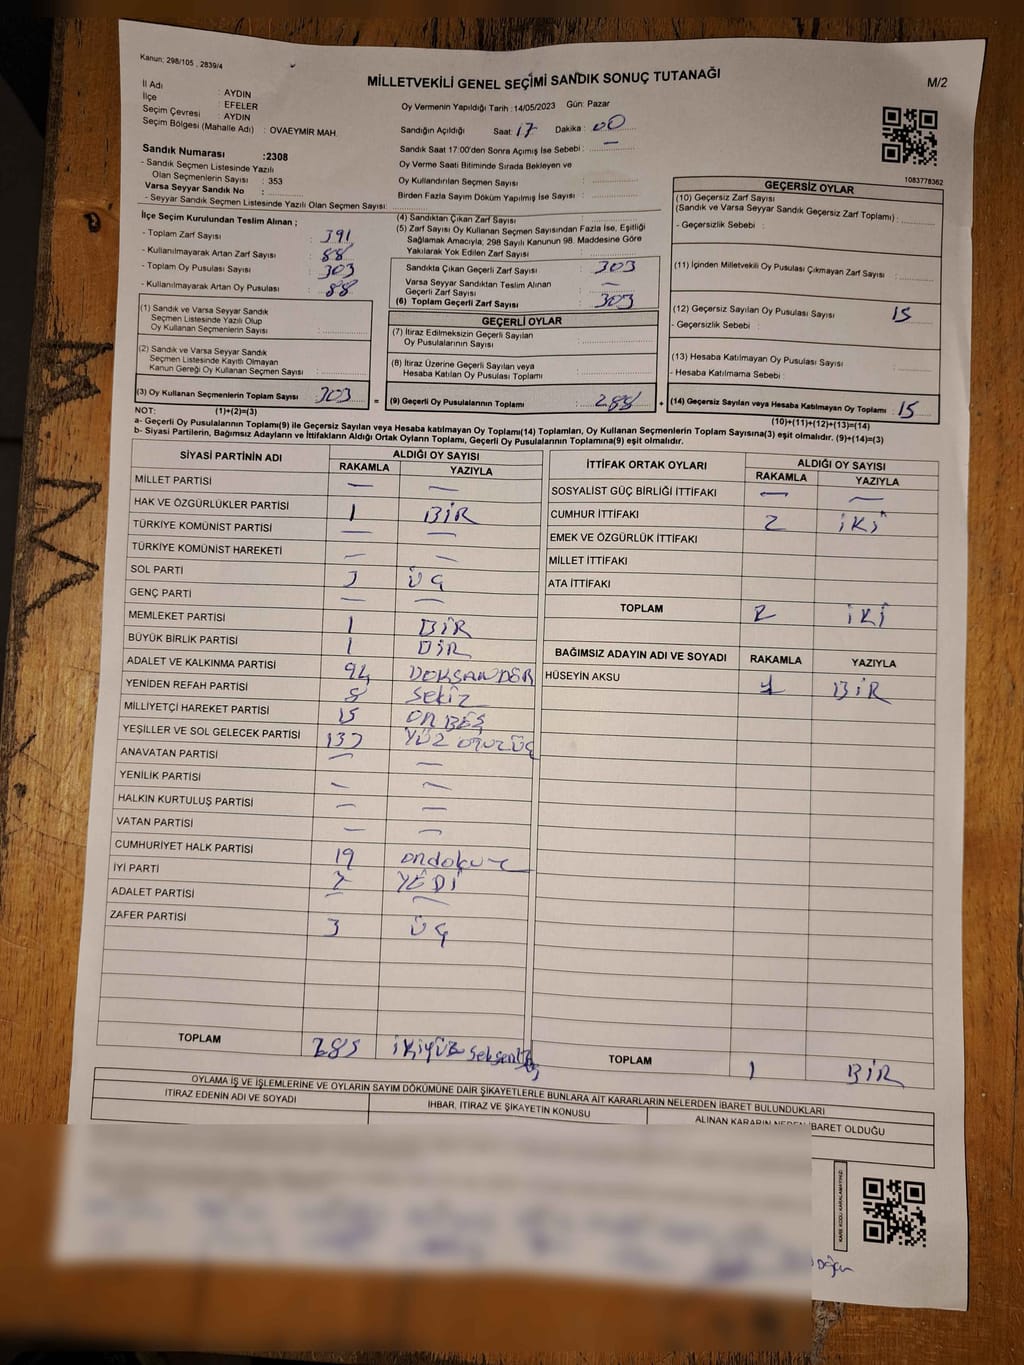 Kanun; 298/105 , 2839/4
MİLLETVEKİLİ GENEL SEÇİMİ SANDIK SONUÇ TUTANAĞI
M/2
İl Adı : AYDIN
İlçe : EFELER
Seçim Çevresi : AYDIN
Seçim Bölgesi (Mahalle Adı) : OVAEYMİR MAH.
Oy Vermenin Yapıldığı Tarih :14/05/2023 Gün: Pazar
Sandığın Açıldığı Saat: 17 Dakika : 00
Sandık Saat 17:00'den Sonra Açımış İse Sebebi : —
Oy Verme Saati Bitiminde Sırada Bekleyen ve
Oy Kullandırılan Seçmen Sayısı
Birden Fazla Sayım Döküm Yapılmış İse Sayısı
1083778362
Sandık Numarası :2308
- Sandık Seçmen Listesinde Yazılı
Olan Seçmenlerin Sayısı : 353
Varsa Seyyar Sandık No :
- Seyyar Sandık Seçmen Listesinde Yazılı Olan Seçmen Sayısı:
İlçe Seçim Kurulundan Teslim Alınan ;
- Toplam Zarf Sayısı : 391
- Kullanılmayarak Artan Zarf Sayısı : 88
- Toplam Oy Pusulası Sayısı : 303
- Kullanılmayarak Artan Oy Pusulası : 88
(1) Sandık ve Varsa Seyyar Sandık
Seçmen Listesinde Yazılı Olup
Oy Kullanan Seçmenlerin Sayısı :
(2) Sandık ve Varsa Seyyar Sandık
Seçmen Listesinde Kayıtlı Olmayan
Kanun Gereği Oy Kullanan Seçmen Sayısı :
(3) Oy Kullanan Seçmenlerin Toplam Sayısı 303 =
(4) Sandıktan Çıkan Zarf Sayısı
(5) Zarf Sayısı Oy Kullanan Seçmen Sayısından Fazla İse, Eşitliği
Sağlamak Amacıyla; 298 Sayılı Kanunun 98. Maddesine Göre
Yakılarak Yok Edilen Zarf Sayısı
Sandıkta Çıkan Geçerli Zarf Sayısı : 303
Varsa Seyyar Sandıktan Teslim Alınan
Geçerli Zarf Sayısı : —
(6) Toplam Geçerli Zarf Sayısı : 303
GEÇERLİ OYLAR
(7) İtiraz Edilmeksizin Geçerli Sayılan
Oy Pusulalarının Sayısı :
(8) İtiraz Üzerine Geçerli Sayılan veya
Hesaba Katılan Oy Pusulası Toplamı :
(9) Geçerli Oy Pusulalarının Toplamı : 288 +
GEÇERSİZ OYLAR
(10) Geçersiz Zarf Sayısı
(Sandık ve Varsa Seyyar Sandık Geçersiz Zarf Toplamı) :
- Geçersizlik Sebebi :
(11) İçinden Milletvekili Oy Pusulası Çıkmayan Zarf Sayısı :
(12) Geçersiz Sayılan Oy Pusulası Sayısı 15
- Geçersizlik Sebebi :
(13) Hesaba Katılmayan Oy Pusulası Sayısı :
- Hesaba Katılmama Sebebi :
(14) Geçersiz Sayılan veya Hesaba Katılmayan Oy Toplamı : 15
NOT: (1)+(2)=(3)
(10)+(11)+(12)+(13)=(14)
a- Geçerli Oy Pusulalarının Toplamı(9) ile Geçersiz Sayılan veya Hesaba katılmayan Oy Toplamı(14) Toplamları, Oy Kullanan Seçmenlerin Toplam Sayısına(3) eşit olmalıdır. (9)+(14)=(3)
b- Siyasi Partilerin, Bağımsız Adayların ve İttifakların Aldığı Ortak Oyların Toplamı, Geçerli Oy Pusulalarının Toplamına(9) eşit olmalıdır.
SİYASİ PARTİNİN ADI ALDIĞI OY SAYISI
RAKAMLA YAZIYLA
MİLLET PARTİSİ — —
HAK VE ÖZGÜRLÜKLER PARTİSİ 1 BİR
TÜRKİYE KOMÜNİST PARTİSİ — —
TÜRKİYE KOMÜNİST HAREKETİ — —
SOL PARTİ 3 ÜÇ
GENÇ PARTİ — —
MEMLEKET PARTİSİ 1 BİR
BÜYÜK BİRLİK PARTİSİ 1 BİR
ADALET VE KALKINMA PARTİSİ 94 DOKSANDÖR
YENİDEN REFAH PARTİSİ 8 Sekiz
MİLLİYETÇİ HAREKET PARTİSİ 15 ON BEŞ
YEŞİLLER VE SOL GELECEK PARTİSİ 133 YÜZ OTUZ ÜÇ
ANAVATAN PARTİSİ — —
YENİLİK PARTİSİ — —
HALKIN KURTULUŞ PARTİSİ — —
VATAN PARTİSİ — —
CUMHURİYET HALK PARTİSİ 19 ondokuz
İYİ PARTİ 7 YEDİ
ADALET PARTİSİ — —
ZAFER PARTİSİ 3 ÜÇ
TOPLAM 285 ikiyüz seksenbeş
İTTİFAK ORTAK OYLARI ALDIĞI OY SAYISI
RAKAMLA YAZIYLA
SOSYALİST GÜÇ BİRLİĞİ İTTİFAKI — —
CUMHUR İTTİFAKI 2 İKİ
EMEK VE ÖZGÜRLÜK İTTİFAKI
MİLLET İTTİFAKI
ATA İTTİFAKI
TOPLAM 2 İKİ
BAĞIMSIZ ADAYIN ADI VE SOYADI RAKAMLA YAZIYLA
HÜSEYİN AKSU 1 BİR
TOPLAM 1 BİR
OYLAMA İŞ VE İŞLEMLERİNE VE OYLARIN SAYIM DÖKÜMÜNE DAİR ŞİKAYETLERLE BUNLARA AİT KARARLARIN NELERDEN İBARET BULUNDUKLARI
İTİRAZ EDENİN ADI VE SOYADI
İHBAR, İTİRAZ VE ŞİKAYETİN KONUSU
ALINAN KARARIN NEDEN İBARET OLDUĞU
KARE KODU KARALAMAYINIZ!